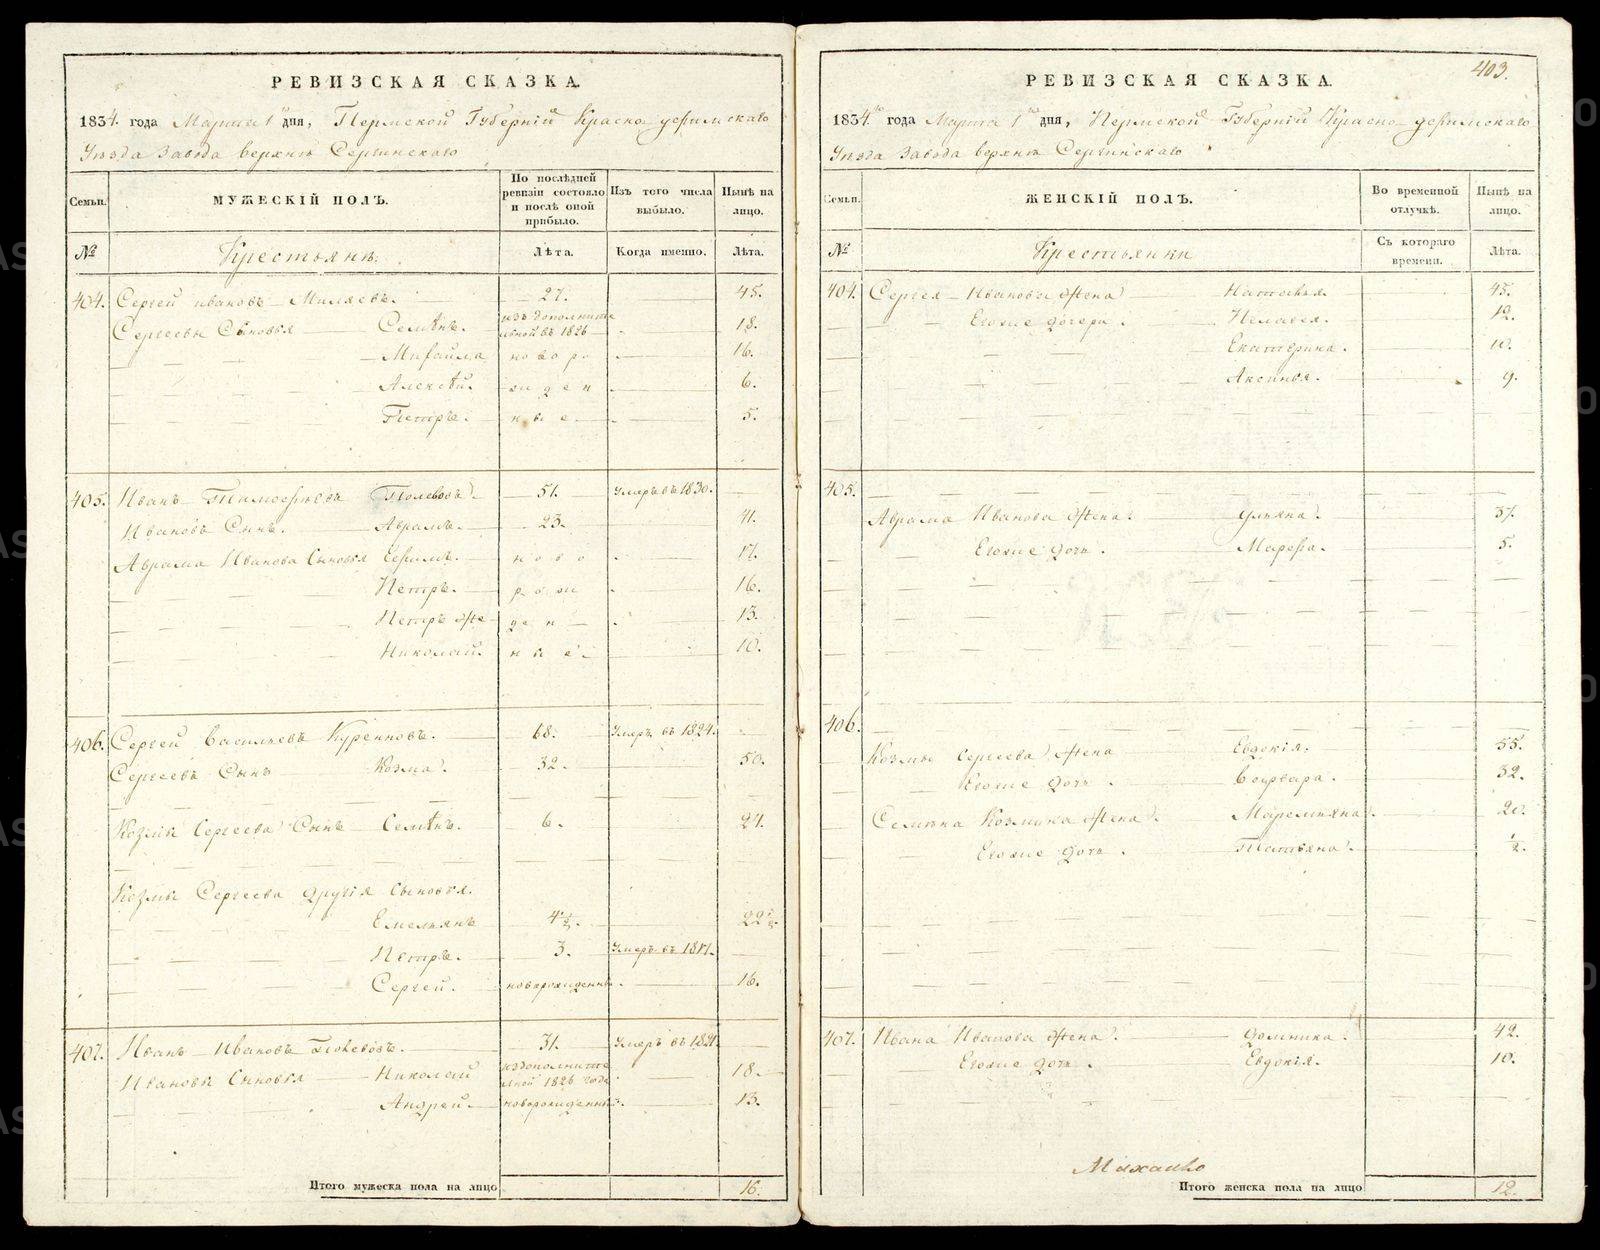 РЕВИЗСКАЯ СКАЗКА.
1834. года Марта 1 дня, Пермской Губернiи Красно уфимскаго
Уѣзда Завода верхнѣ Сергинскаго
Семьи. МУЖЕСКIЙ ПОЛЪ. По послѣдней ревизiи состояло и послѣ оной прибыло. Изъ того числа выбыло. Нынѣ на лицо.
№ Крестьянѣ. Лѣта. Когда именно. Лѣта.
404. Сергей ивановъ Миляевъ. 27. 45.
Сергеевы Сыновья Семѣнъ. изъ дополнительной въ 1826 18.
Михайла новоро 16.
Алексѣй. жден 6.
Петръ. ные 5.
405. Иванъ Тимофѣевъ Полевовъ. 51. Умеръ въ 1830.
Ивановъ Сынъ. Аврамъ. 23. 41.
Аврама Иванова Сыновья Ефимъ. ново 17.
Петръ. рож 16.
Петръ же ден 13.
Николай. ные 10.
406. Сергей Васильевъ Куренновъ. 68. Умеръ въ 1824.
Сергеевъ Сынъ Козма. 32. 50.
Козмы Сергеева Сынъ Семѣнъ. 6. 24.
Козмы Сергеева другiя сыновья.
Емельянъ 4½. 22½.
Петръ. 3. Умеръ въ 1817.
Сергей. новорожденны. 16.
407. Иванъ Ивановъ Полевовъ. 31. Умеръ въ 1821.
Ивановы Сыновья Николай издополнительной 1826 года 18.
Андрей. новорожденны. 13.
Итого мужеска пола на лицо 16.
403.
РЕВИЗСКАЯ СКАЗКА.
1834. года Марта 1 дня, Пермской Губернiи Красно уфимскаго
Уѣзда Завода верхнѣ Сергинскаго
Семьи. ЖЕНСКIЙ ПОЛЪ. Во временной отлучкѣ. Нынѣ на лицо.
№ Крестьянки Съ котораго времени. Лѣта.
404. Сергея Иванова жена Наталья. 45.
Егожие дочери. Пелагея. 12.
Екатерина. 10.
Аксинья. 9.
405.
Аврама Иванова жена. Ульяна. 37.
Егожие дочь. Марфа. 5.
406.
Козмы Сергеева жена Евдокiя. 55.
Егожие дочь. Варвара. 32.
Семѣна Козмина жена. Маремьяна. 20.
Егожие дочь. Татьяна. ½.
407. Ивана Иванова жена. Домника. 42.
Егожие дочь. Евдокiя. 10.
Итого женска пола на лицо 12.